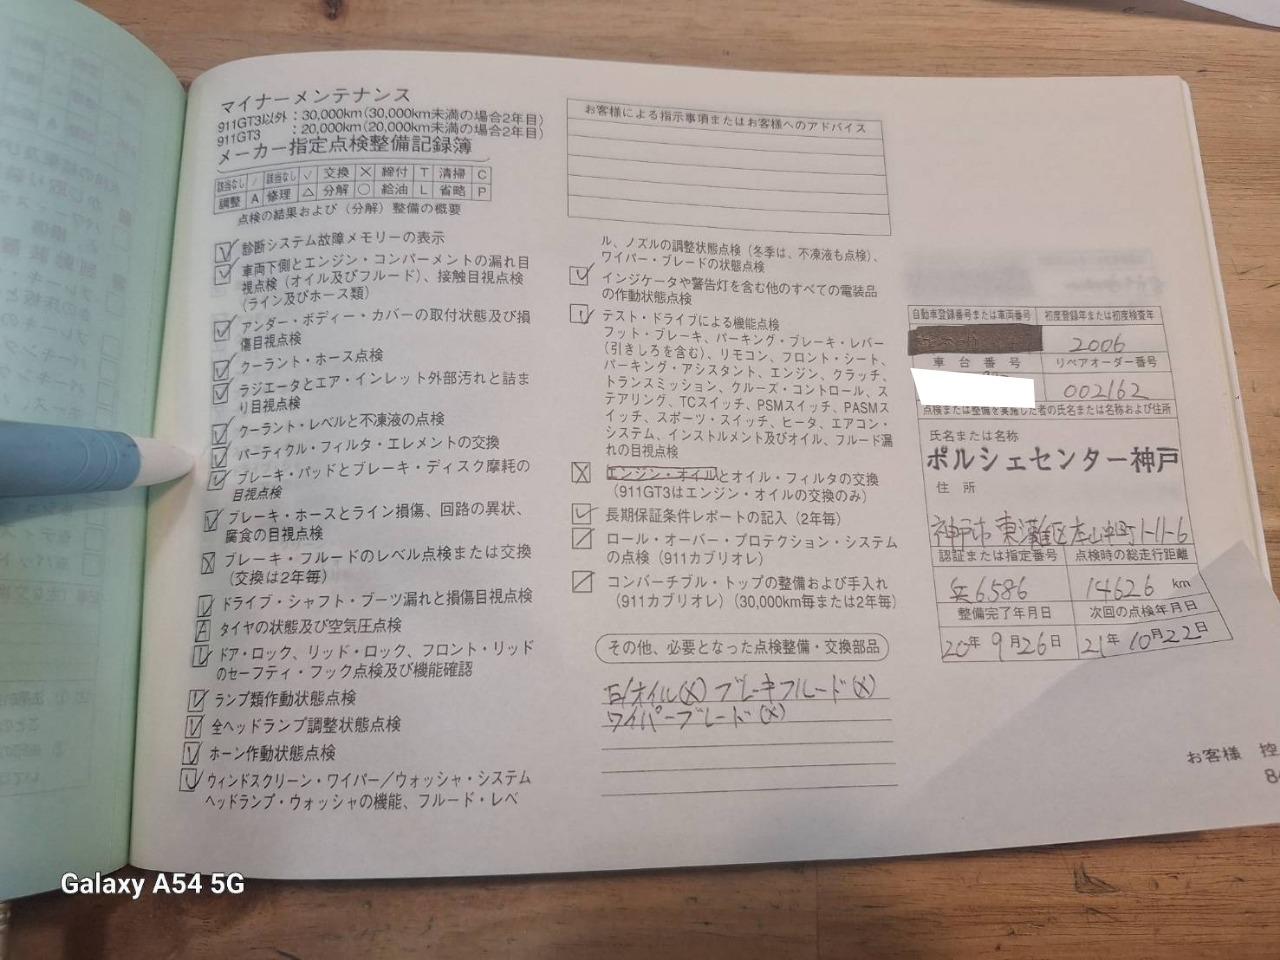 マイナーメンテナンス
911GT3以外：30,000km(30,000km未満の場合2年目)
911GT3　：20,000km(20,000km未満の場合2年目)
メーカー指定点検整備記録簿
該当なし / 該当なし ✓ 交換 × 締付 T 清掃 C
調整 A 修理 △ 分解 ○ 給油 L 省略 P
点検の結果および（分解）整備の概要
診断システム故障メモリーの表示
車両下側とエンジン・コンパーメントの漏れ目
視点検（オイル及びフルード）、接触目視点検
（ライン及びホース類）
アンダー・ボディー・カバーの取付状態及び損
傷目視点検
クーラント・ホース点検
ラジエータとエア・インレット外部汚れと詰ま
り目視点検
クーラント・レベルと不凍液の点検
パーティクル・フィルタ・エレメントの交換
ブレーキ・パッドとブレーキ・ディスク摩耗の
目視点検
ブレーキ・ホースとライン損傷、回路の異状、
腐食の目視点検
ブレーキ・フルードのレベル点検または交換
（交換は2年毎）
ドライブ・シャフト・ブーツ漏れと損傷目視点検
A タイヤの状態及び空気圧点検
ドア・ロック、リッド・ロック、フロント・リッド
のセーフティ・フック点検及び機能確認
ランプ類作動状態点検
全ヘッドランプ調整状態点検
ホーン作動状態点検
ウィンドスクリーン・ワイパー／ウォッシャ・システム
ヘッドランプ・ウォッシャの機能、フルード・レベ
お客様による指示事項またはお客様へのアドバイス
ル、ノズルの調整状態点検（冬季は、不凍液も点検）、
ワイパー・ブレードの状態点検
インジケータや警告灯を含む他のすべての電装品
の作動状態点検
テスト・ドライブによる機能点検
フット・ブレーキ、パーキング・ブレーキ・レバー
（引きしろを含む）、リモコン、フロント・シート、
パーキング・アシスタント、エンジン、クラッチ、
トランスミッション、クルーズ・コントロール、ス
テアリング、TCスイッチ、PSMスイッチ、PASMス
イッチ、スポーツ・スイッチ、ヒータ、エアコン・
システム、インストルメント及びオイル、フルード漏
れの目視点検
エンジン・オイルとオイル・フィルタの交換
（911GT3はエンジン・オイルの交換のみ）
長期保証条件レポートの記入（2年毎）
ロール・オーバー・プロテクション・システム
の点検（911カブリオレ）
コンバーチブル・トップの整備および手入れ
（911カブリオレ）（30,000km毎または2年毎）
その他、必要となった点検整備・交換部品
E/オイル(X) ブレーキフルード(X)
ワイパーブレード(X)
自動車登録番号または車両番号 初度登録年または初度検査年
2006
車台番号 リペアオーダー番号
002162
点検または整備を実施した者の氏名または名称および住所
氏名または名称
ポルシェセンター神戸
住所
神戸市東灘区本山中町1-11-6
認証または指定番号 点検時の総走行距離
兵6586 14626 km
整備完了年月日 次回の点検年月日
20年9月26日 21年10月22日
お客様 控
Galaxy A54 5G